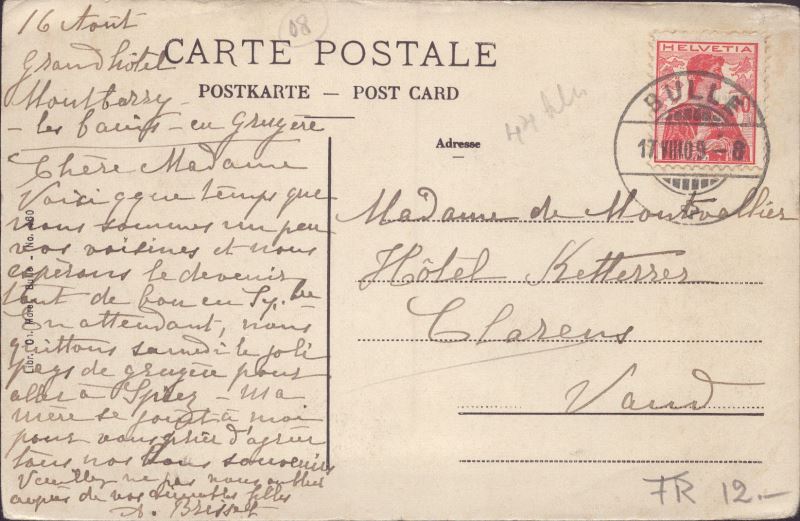 16 Aout
Grand hôtel
Montbarry -
- les bains - en Gruyère
Chère Madame
Voici qque temps que
nous sommes un peu
vos voisines et nous
espérons le devenir
tout de bon en 7bre
En attendant, nous
quittons samedi le joli
pays de gruyère pour
aller à Spiez - Ma
mère se joint à moi
pour vous prier d'agréer
tous nos bons souvenirs
Veuillez ne pas nous oublier
auprès de vos aimables filles
08
CARTE POSTALE
POSTKARTE — POST CARD
Adresse
HELVETIA
10
BULLE
17.VIII.09.-8
Madame de Montvallier
Hôtel Ketterer
Clarens
Vaud
FR 12.-